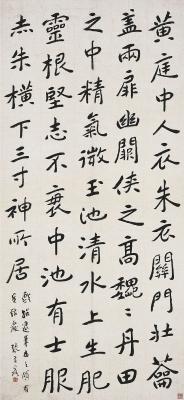 黃庭中人衣朱衣關門壯蘥
蓋兩扉幽闕俠之高巍〻丹田
之中精氣微玉池清水上生肥
靈根堅志不衰中池有士服
赤朱橫下三寸神所居